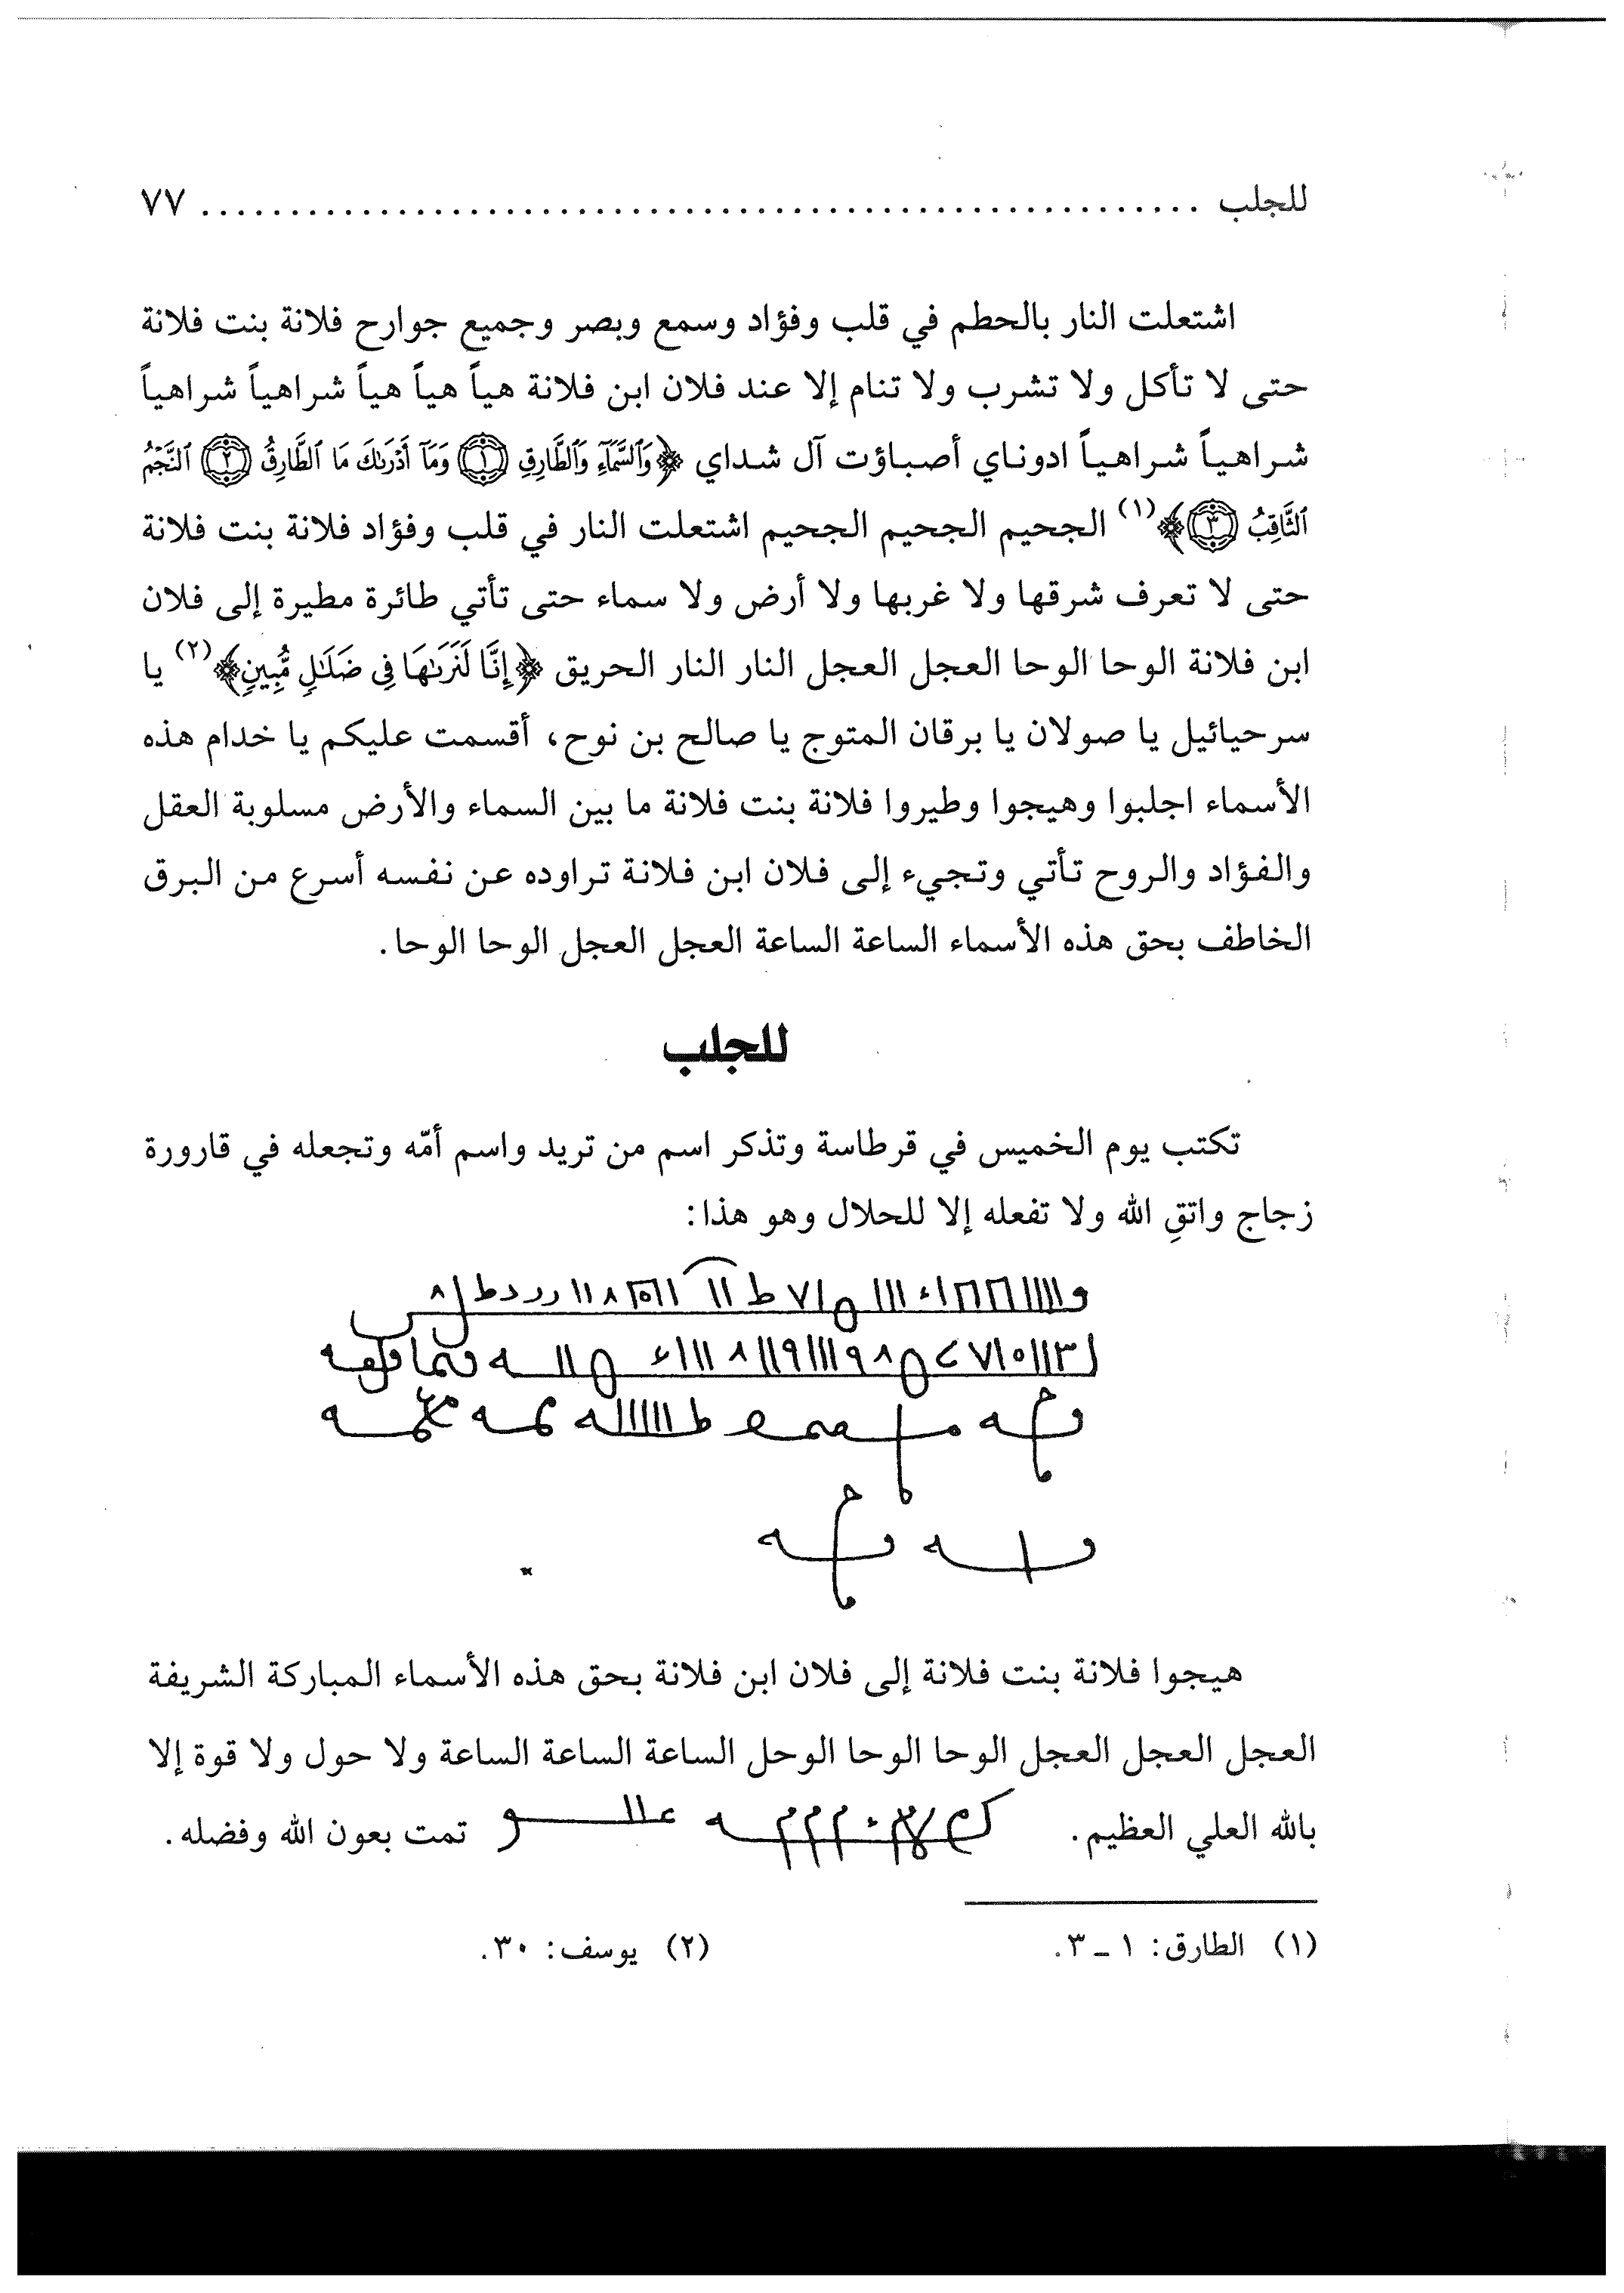 للجلب ........................................................ ٧٧
اشتعلت النار بالحطم في قلب وفؤاد وسمع وبصر وجميع جوارح فلانة بنت فلانة
حتى لا تأكل ولا تشرب ولا تنام إلا عند فلان ابن فلانة هياً هياً هياً شراهياً شراهياً
شراهياً شراهياً ادوناي أصباؤت آل شداي ﴿وَٱلسَّمَآءِ وَٱلطَّارِقِ ١ وَمَآ أَدْرَىٰكَ مَا ٱلطَّارِقُ ٢ ٱلنَّجْمُ
ٱلثَّاقِبُ ٣﴾(١) الجحيم الجحيم الجحيم اشتعلت النار في قلب وفؤاد فلانة بنت فلانة
حتى لا تعرف شرقها ولا غربها ولا أرض ولا سماء حتى تأتي طائرة مطيرة إلى فلان
ابن فلانة الوحا الوحا العجل العجل النار النار الحريق ﴿إِنَّا لَنَرَىٰهَا فِى ضَلَٰلٍ مُّبِينٍ﴾(٢) يا
سرحيائيل يا صولان يا برقان المتوج يا صالح بن نوح، أقسمت عليكم يا خدام هذه
الأسماء اجلبوا وهيجوا وطيروا فلانة بنت فلانة ما بين السماء والأرض مسلوبة العقل
والفؤاد والروح تأتي وتجيء إلى فلان ابن فلانة تراوده عن نفسه أسرع من البرق
الخاطف بحق هذه الأسماء الساعة الساعة العجل العجل الوحا الوحا.
للجلب
تكتب يوم الخميس في قرطاسة وتذكر اسم من تريد واسم أمّه وتجعله في قارورة
زجاج واتقِ الله ولا تفعله إلا للحلال وهو هذا:
هيجوا فلانة بنت فلانة إلى فلان ابن فلانة بحق هذه الأسماء المباركة الشريفة
العجل العجل العجل الوحا الوحا الوحل الساعة الساعة الساعة ولا حول ولا قوة إلا
بالله العلي العظيم. تمت بعون الله وفضله.
(١) الطارق: ١ ـ ٣. (٢) يوسف: ٣٠.